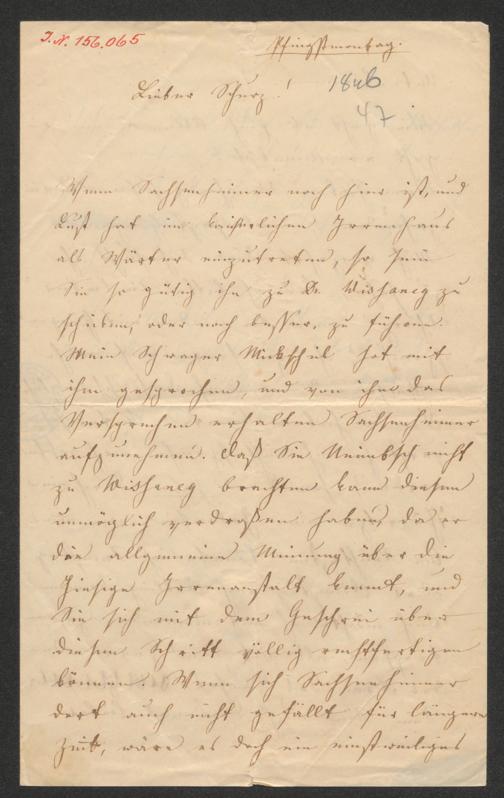 I.N. 156.065
Pfingstmontag.
Lieber Schurz!
1846
47
Wenn Sachsenheimer noch hier ist, und
Lust hat im kaiserlichen Irrenhaus
als Wärter einzutreten, so sein
Sie so gütig ihn zu Dr. Wisgrill zu
schicken, oder noch besser, zu führen.
Mein Schwager Mikschik hat mit
ihm gesprochen, und von ihm das
Versprechen erhalten Sachsenheimer
aufzunehmen. Daß Sie Niembsch nicht
zu brachten kann diesen
unmöglich verdroßen haben, da er
die allgemeine Meinung über die
hiesige Irrenanstalt kennt, und
Sie sich mit dem Geschrei über
diesen Schritt völlig rechtfertigen
können. Wenn sich Sachsenheimer
dort auch nicht gefällt für längere
Zeit, wäre es doch ein einstweiliges